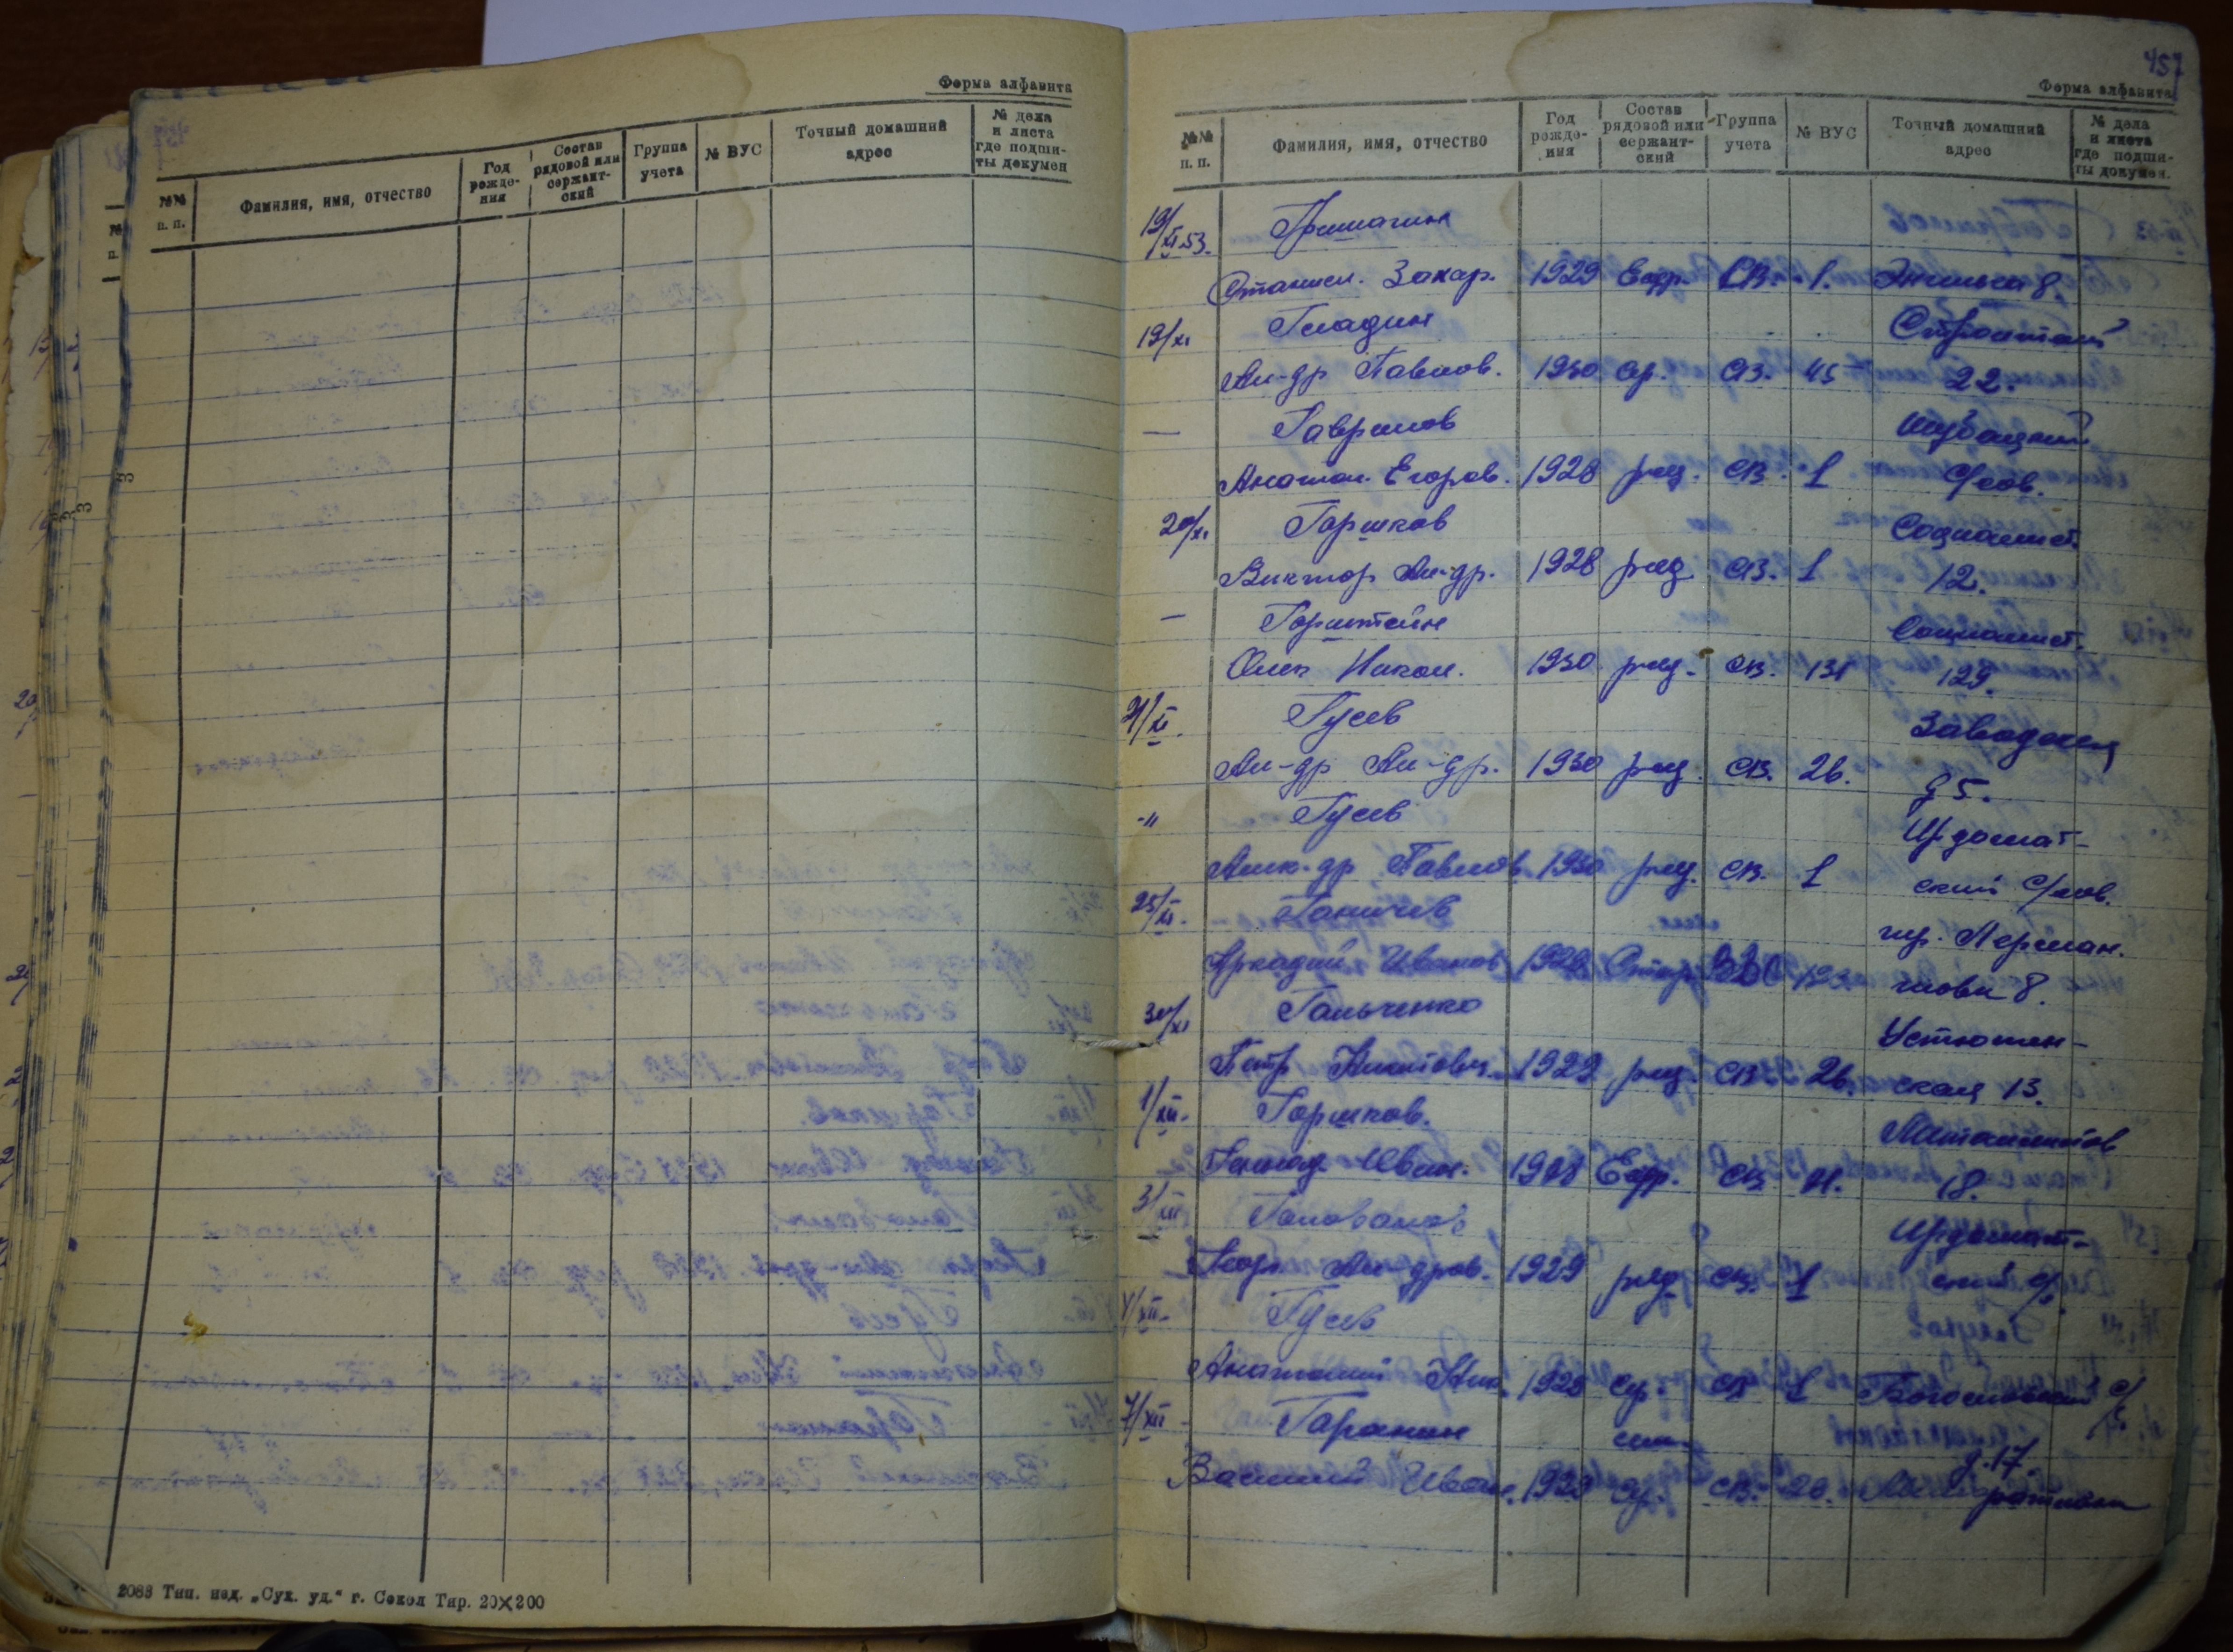 Форма алфавита
№№ п. п.
Фамилия, имя, отчество
Год рожде-ния
Состав рядовой или сержант-ский
Группа учета
№ ВУС
Точный домашний адрес
№ дела и листа где подши-ты докумен
3
3
3
2083 Тип. изд. „Сух. уд.“ г. Сокол Тир. 20×200
457
Форма алфавита
№№ п. п.
Фамилия, имя, отчество
Год рожде-ния
Состав рядовой или сержант-ский
Группа учета
№ ВУС
Точный домашний адрес
№ дела и листа где подши-ты докумен.
19/XI 53. Гришагин
Станисл. Захар. 1929 Ефр. СВ. 1. Энгельса 8.
19/XI Гладин
Ал-др Павлов. 1930 ср. СВ. 45 22.
— Гаврилов
Анатол. Егоров. 1928 ряд. СВ. 1 с/сов.
20/XI Горшков Социалист.
Виктор Ал-др. 1928 ряд СВ. 1 12.
— Горштейн Социалист.
Олег Никол. 1930 ряд. СВ. 131 129.
21/XI. Гусев Заводская
Ал-др Ал-др. 1930 ряд. СВ. 26. д 5.
-" Гусев Ирдомат-
Алек-др Павлов. 1930 ряд. СВ. 1 ский с/сов.
25/XI. Ганичев
Аркадий Иванов 1929 ВВС 8.
30/XI Гальченко Устюжен-
Петр 1929 ряд. СВ. 26. ская 13.
1/XII. Горшков.
Геннад. Иван. Ефр. СВ. 18.
3/XII Голованов Ирдомат-
Георг. Ал-дров. 1929 ряд СВ. 1 ский с/
4/XII. Гусев
Анатолий Ник. 1928 СВ 1 Богословский с/с
7/XII Гаранин д. 17
Василий Иван. СВ. 20.